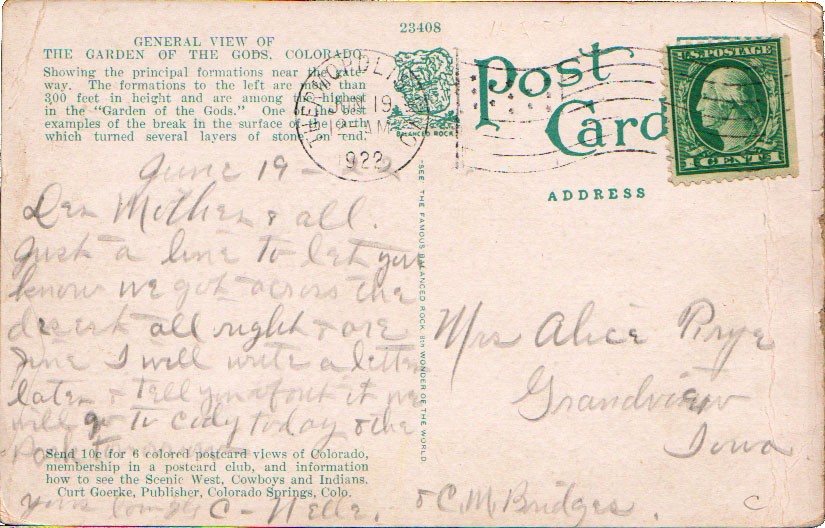 23408
GENERAL VIEW OF
THE GARDEN OF THE GODS, COLORADO
Showing the principal formations near the gate-
way. The formations to the left are more than
300 feet in height and are among the highest
in the "Garden of the Gods." One of the best
examples of the break in the surface of the earth
which turned several layers of stone on end.
BALANCED ROCK
THERMOPOLIS
JUN 19
AM
1922
Post
Card
U.S. POSTAGE
1 CENT 1
ADDRESS
June 19 -
Dear Mother & all.
Just a line to let you
know we got across the
desert all right & are
fine I will write a letter
later & tell you about it we
will go to Cody today & the
Park tomorrow
Send 10c for 6 colored postcard views of Colorado,
membership in a postcard club, and information
how to see the Scenic West, Cowboys and Indians.
Curt Goerke, Publisher, Colorado Springs, Colo.
yours C - Nelle.
& C. M. Bridges.
SEE THE FAMOUS BALANCED ROCK 8TH WONDER OF THE WORLD
Mrs Alice Pirye
Grandview
Iowa
C